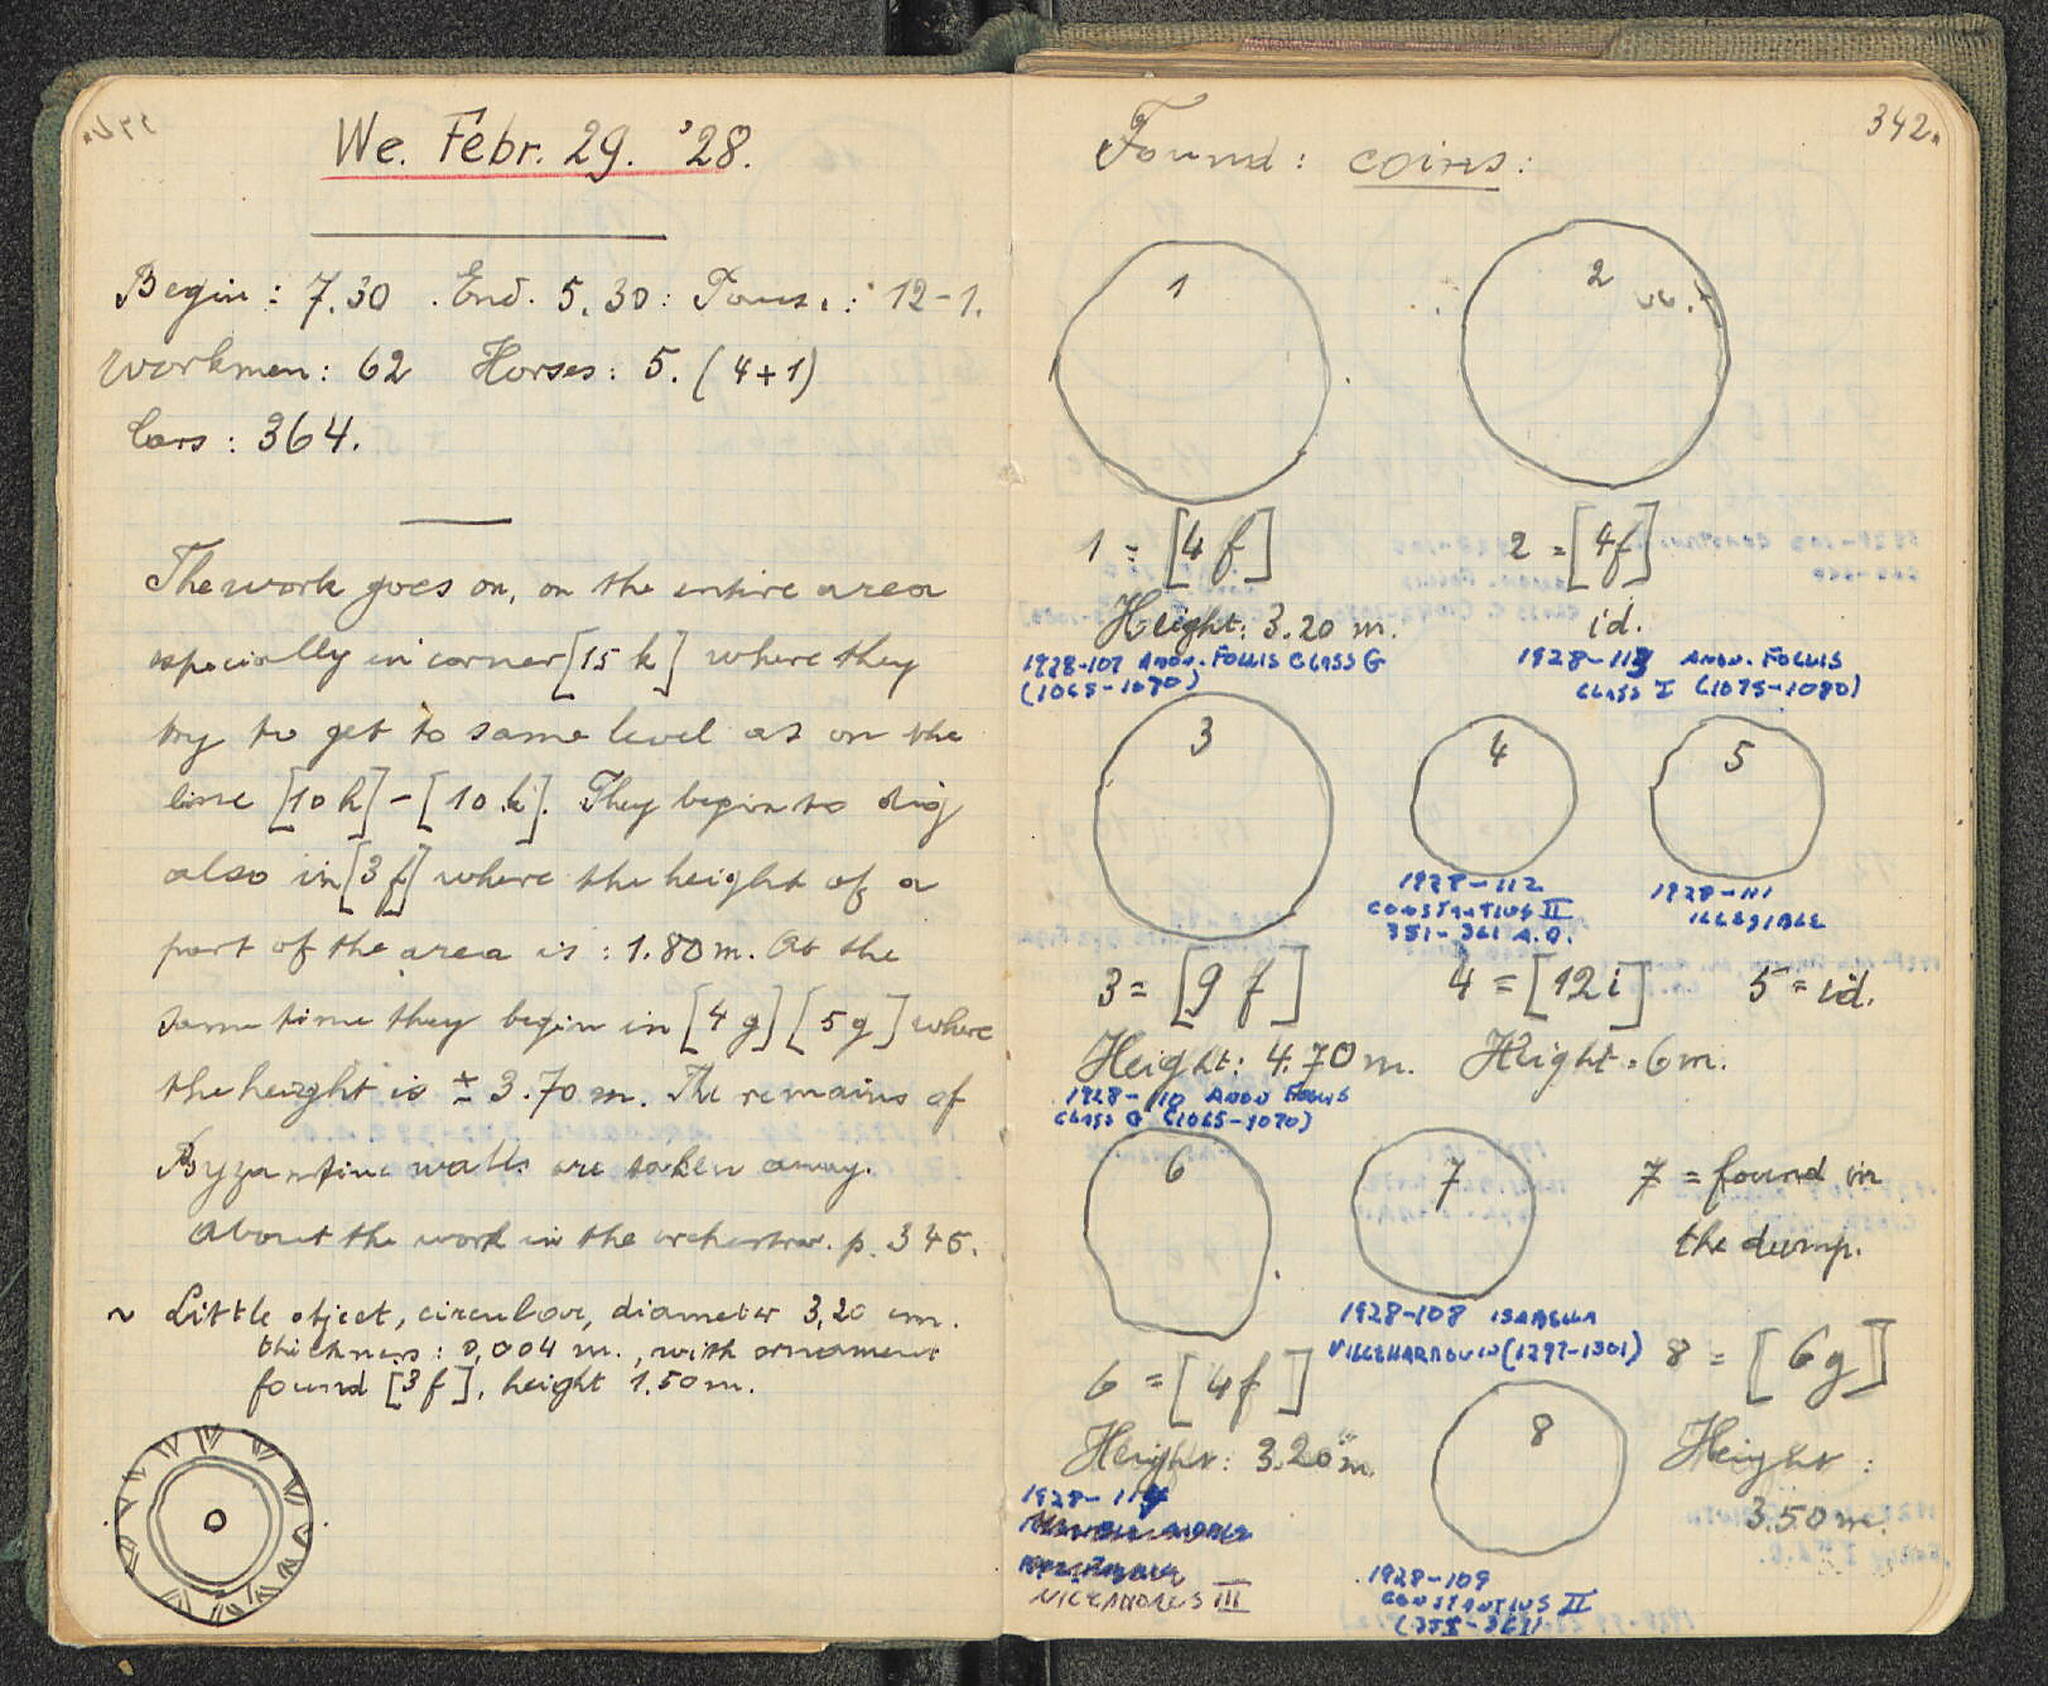 We. Febr. 29. '28.
Begin: 7.30 . End. 5.30: Paus.: 12-1.
Workmen: 62 Horses: 5. (4+1)
Cars: 364.
The work goes on, on the entire area
especially in corner [15 k] where they
try to get to same level as on the
line [10 h] - [10 k]. They begin to dig
also in [3 f] where the height of a
part of the area is : 1.80 m. At the
same time they begin in [4 g] [5 g] where
the height is ± 3.70 m. The remains of
Byzantine walls are taken away.
About the work in the orchestra. p. 345.
~ Little object, circular, diameter 3,20 cm.
thickness: 0,004 m., with ornament
found [3 f], height 1.50 m.
342.
Found: coins:
1
2
1 = [4 f]
2 = [4f]
Height: 3.20 m.
id.
1928-107 ANON. FOLLIS CLASS G
(1065-1070)
1928-113 ANON. FOLLIS
CLASS I (1075-1080)
3
4
5
1928-112
CONSTANTIUS II
351-361 A.D.
1928-111
ILLEGIBLE
3 = [9 f]
4 = [12 i]
5 = id.
Height: 4.70 m.
Height = 6 m.
1928-110 ANON FOLLIS
CLASS G (1065-1070)
6
7
7 = found in
the dump.
1928-108 ISABELLA
VILLEHARDOUIN (1297-1301)
6 = [4f]
8 = [6g]
8
Height: 3.20 m.
Height:
3.50 m.
1928-114
NICEPHORUS III
1928-109
CONSTANTIUS II
(355-361)